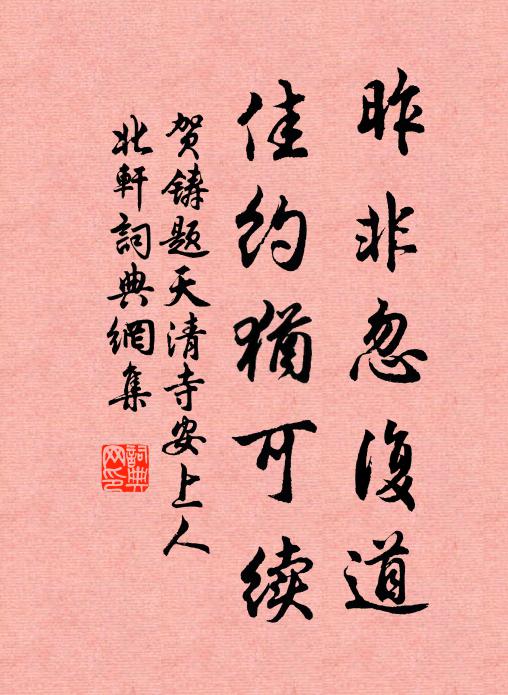 昨非忽復道
佳约猶可续
贺铸题天清寺安上人
北軒詞典網集
詞典
网印